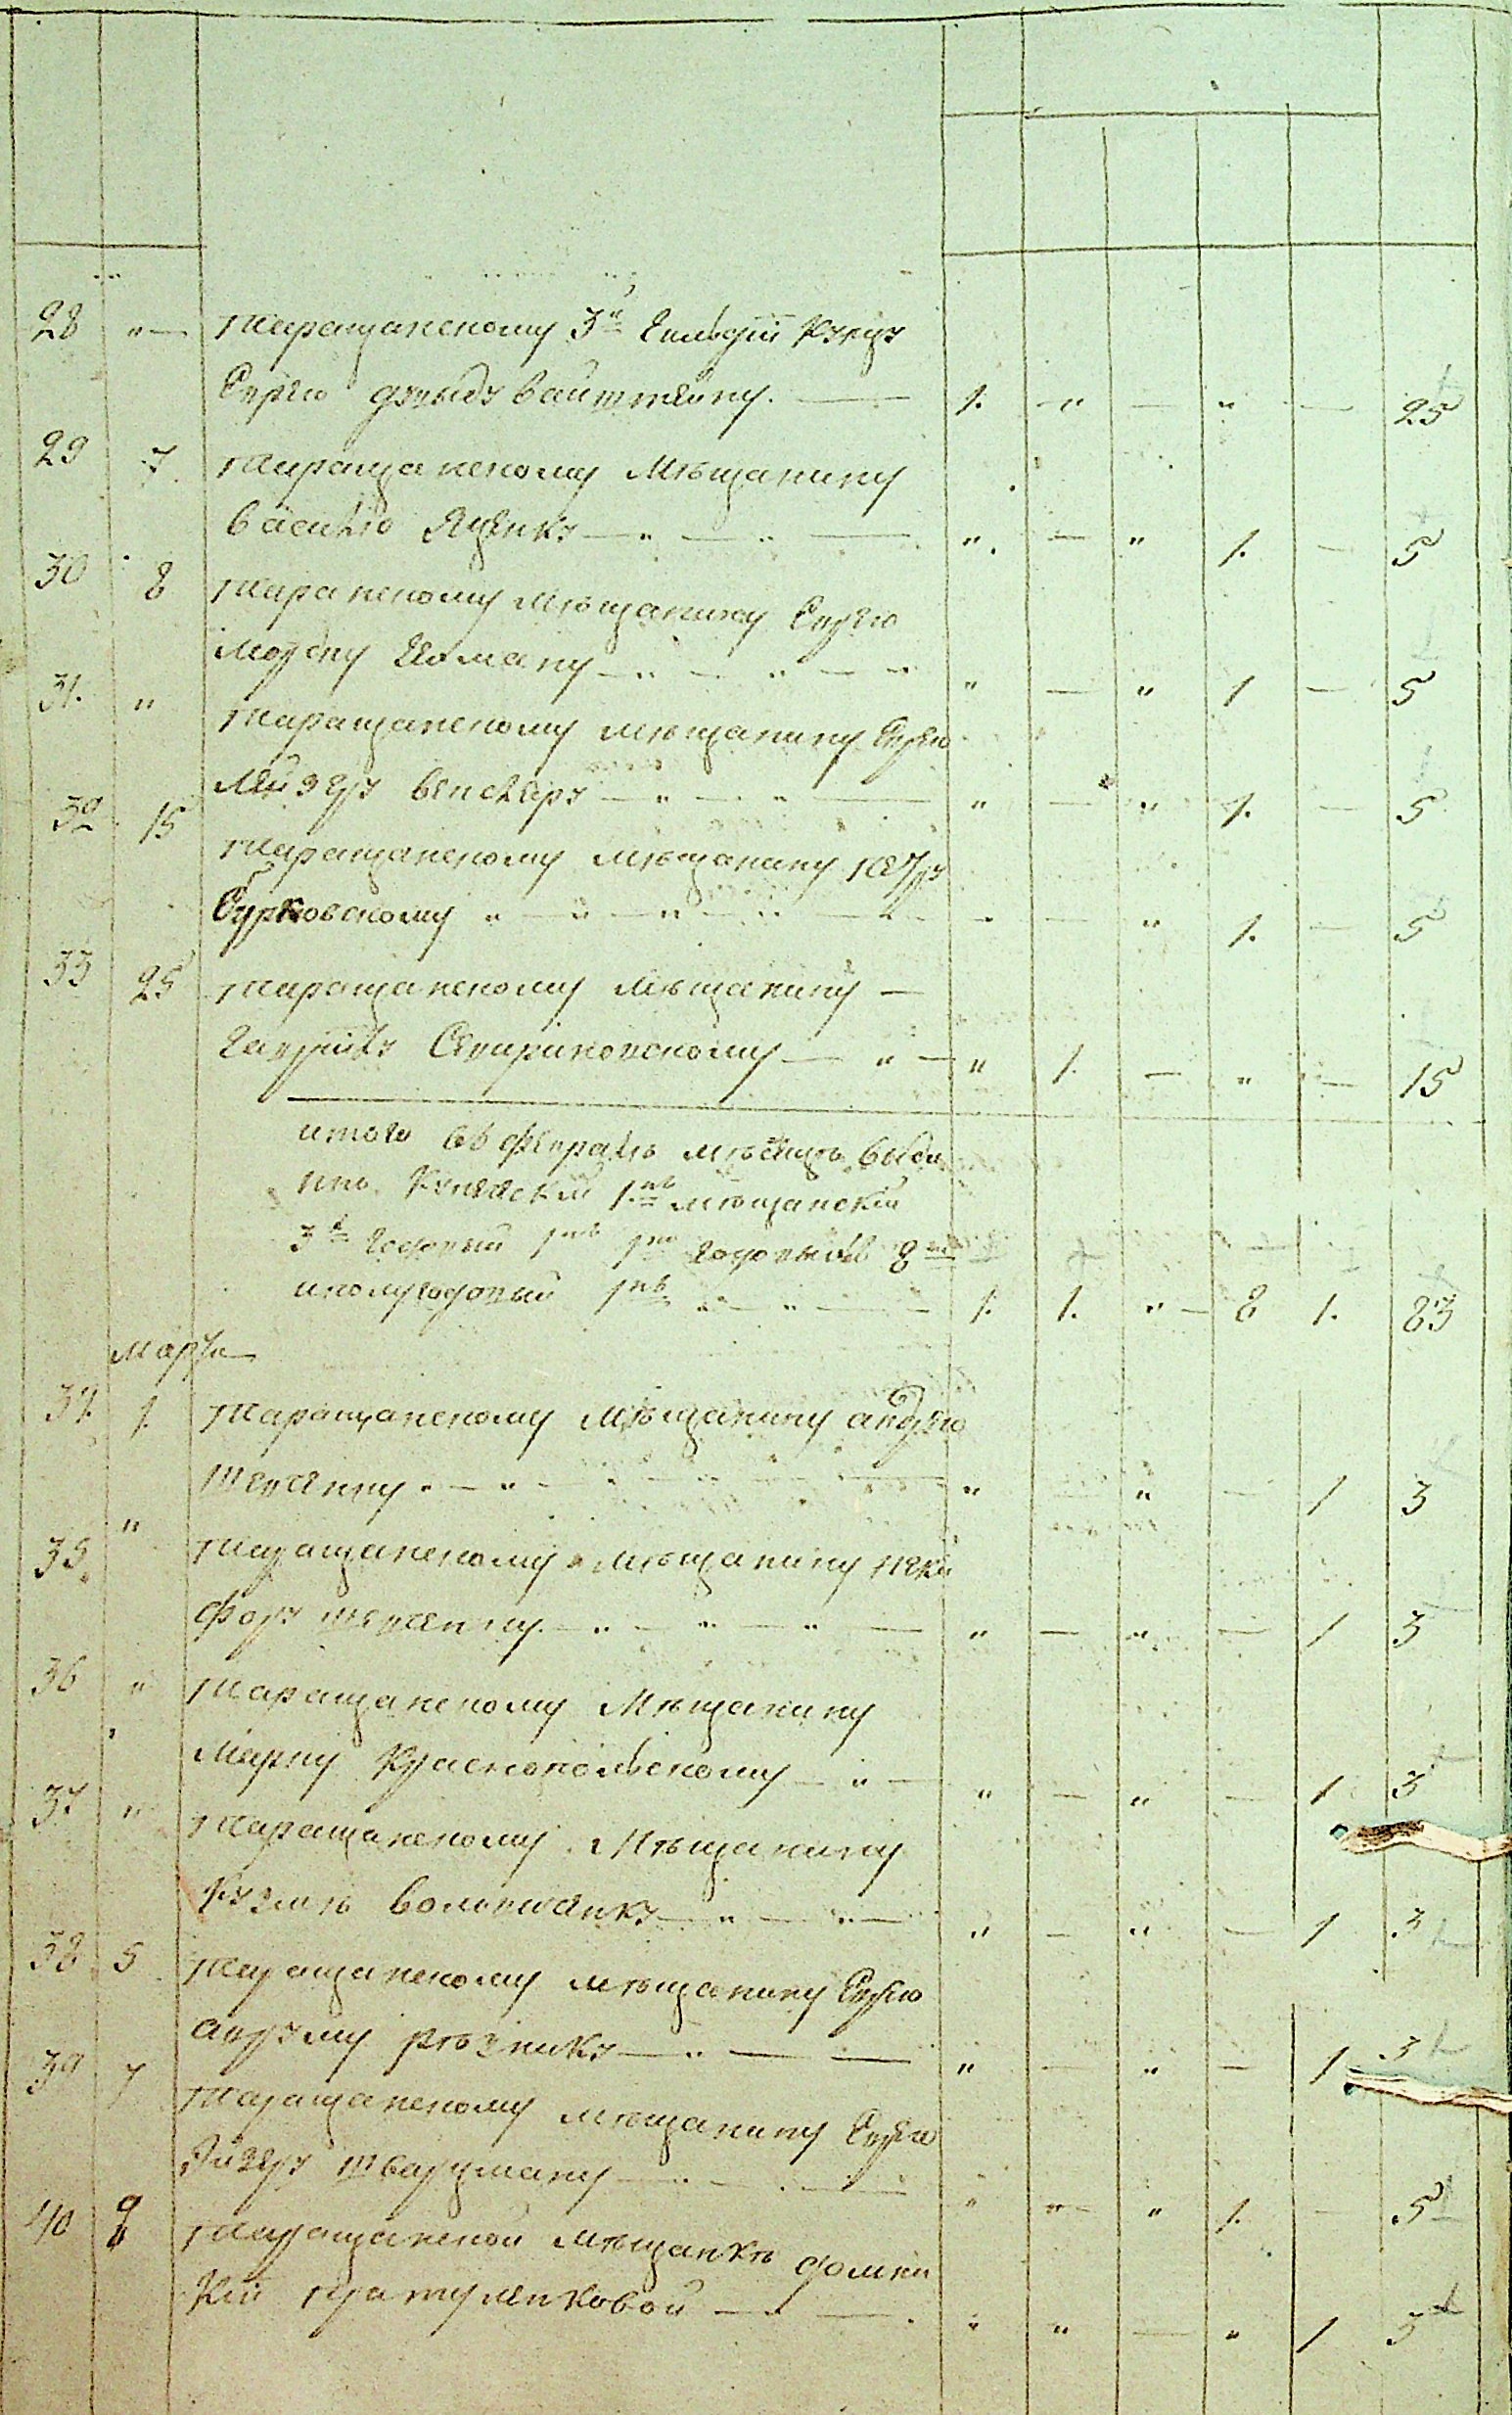 28 " — Таращанскому 3й Гильдіи Купцу
Еврею Вайнштейну. — 1. — " — " — 25
29 7. Таращанскому Мѣщанину
Василію Яценку — " — " — ". — " 1. — 5
30 8 Мѣщанину Еврею
" — " 1 — 5
31. " Таращанскому мѣщанину Еврею
Лейзеру — " — " — " — " 1. — 5
32 15 Таращанскому мѣщанину Петру
Бурковскому " — " — " — " — " 1. — 5
33 25 Таращанскому Мѣщанину —
Гаврилу — " — " 1. — " — 15
итого въ февралѣ мѣсяцѣ выда
но. Купеческій 1нъ мѣщанскій
3й Годовый 1нъ Годовыхъ 8мь
иполугодовый 1нъ — " — 1. 1. " — 8 1. 83
Марта
34. 1. Таращанскому Мѣщанину андрею
Шевченку. — " — " — " — 1 3
35. " Таращанскому мѣщанину Ники
фору шевченку. — " — " — " — " — " — 1 3
36 " Таращанскому Мѣщанину
Марку Краснопольскому — " — " — " — 1 3
37 " Таращанскому Мѣщанину
Кузьмѣ — " — " — " — " — 1 3
38 5 Таращанскому мѣщанину Еврею
авруму рѣзнику — " — — " — " — 1 3
39 7 Таращанскому мѣщанину Еврею
шварцману — " — " — " 1. — 5
40 8 Таращанской Мѣщанкѣ домни
кіи — " " — " 1 3